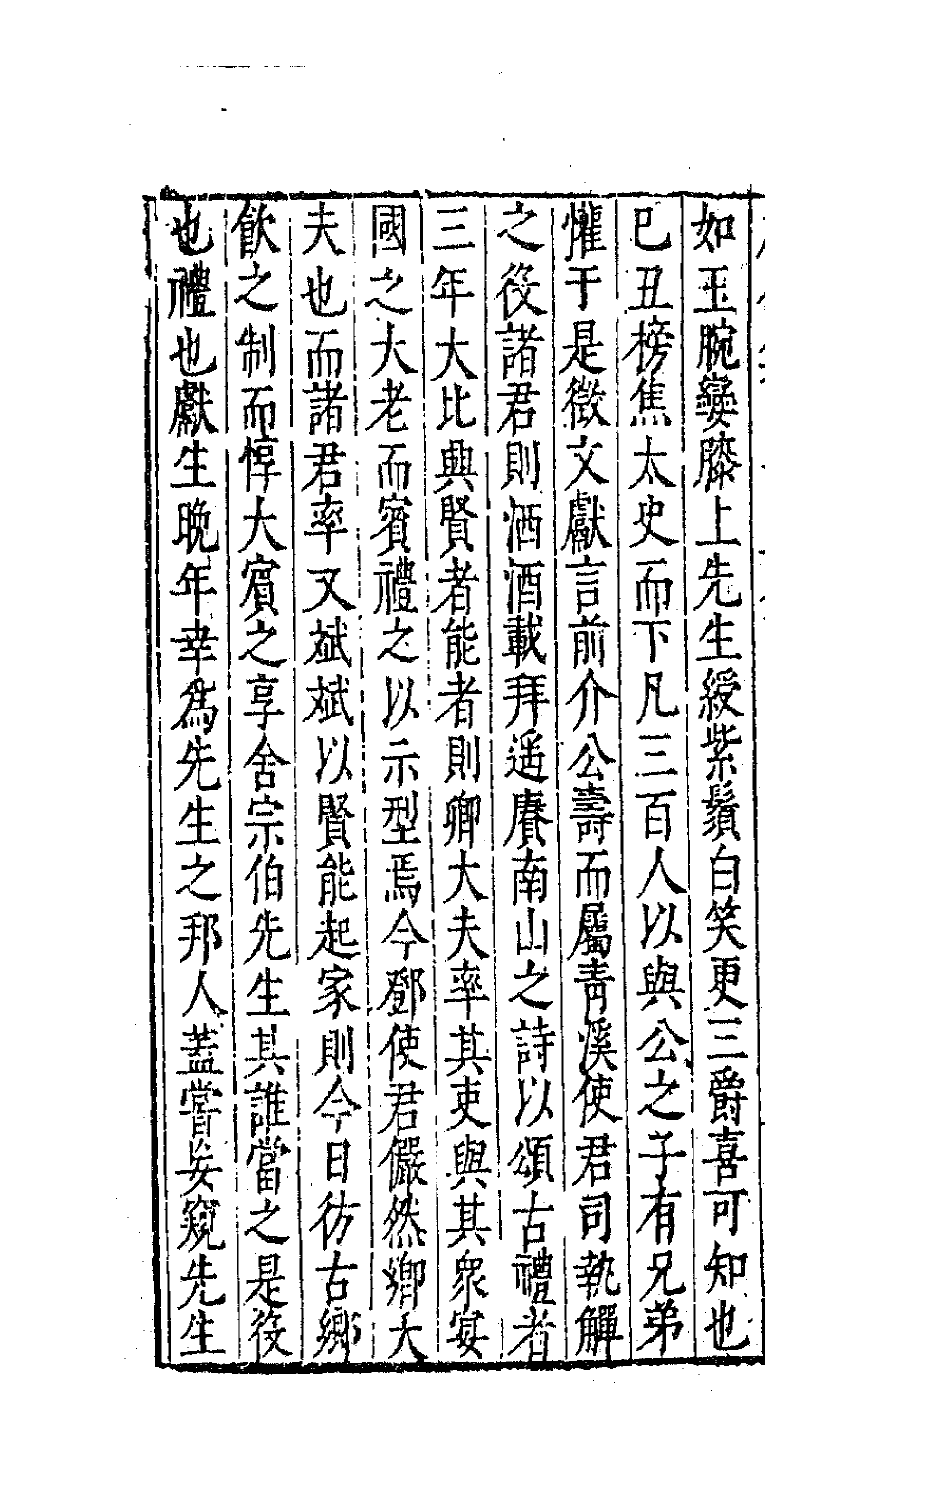 如玉腕孌膝上先生綬紫鬚白笑更三爵喜可知也
巳丑榜焦太史而下凡三百人以與公之子有兄弟
懽于是徵文獻言前介公壽而屬青溪使君司執觶
之役諸君則洒酒載拜遥賡南山之詩以頌古禮者
三年大比興賢者能者則卿大夫率其吏與其衆宴
國之大老而賓禮之以示型焉今鄧使君儼然鄉大
夫也而諸君率又斌斌以賢能起家則今日彷古鄉
飲之制而惇大賓之享舍宗伯先生其誰當之是役
也禮也獻生晚年幸爲先生之邦人蓋嘗妄窺先生